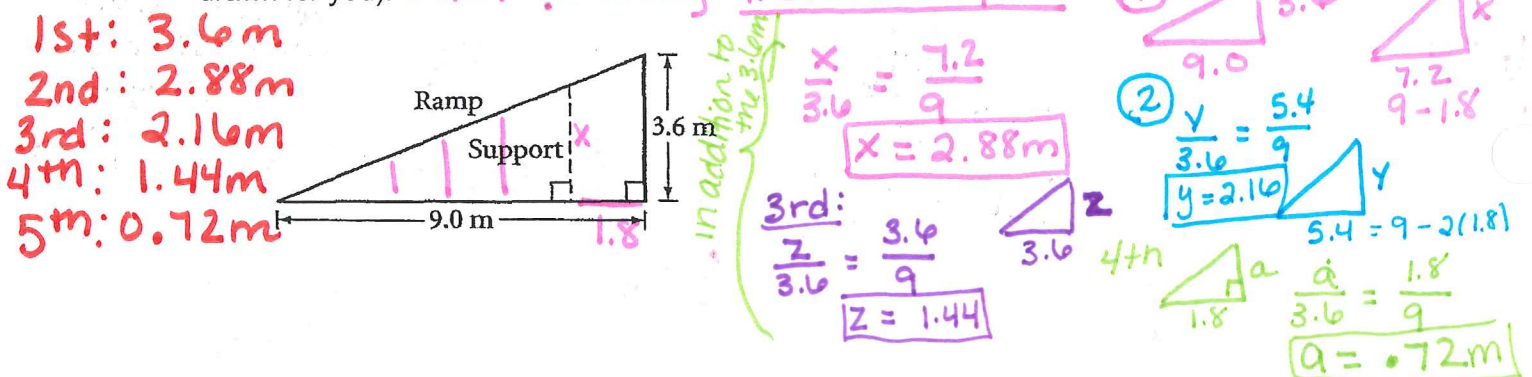 1st: 3.6m
2nd: 2.88m
3rd: 2.16m
4th: 1.44m
5th: 0.72m
Ramp
Support
x
3.6 m
9.0 m
1.8
In addition to
the 3.6m
x/3.6 = 7.2/9
x = 2.88m
3rd:
z/3.6 = 3.6/9
z = 1.44
z
3.6
9.0
x
7.2
9-1.8
2
y/3.6 = 5.4/9
y=2.16
y
5.4 = 9-2(1.8)
4th
a
1.8
a/3.6 = 1.8/9
a = .72m